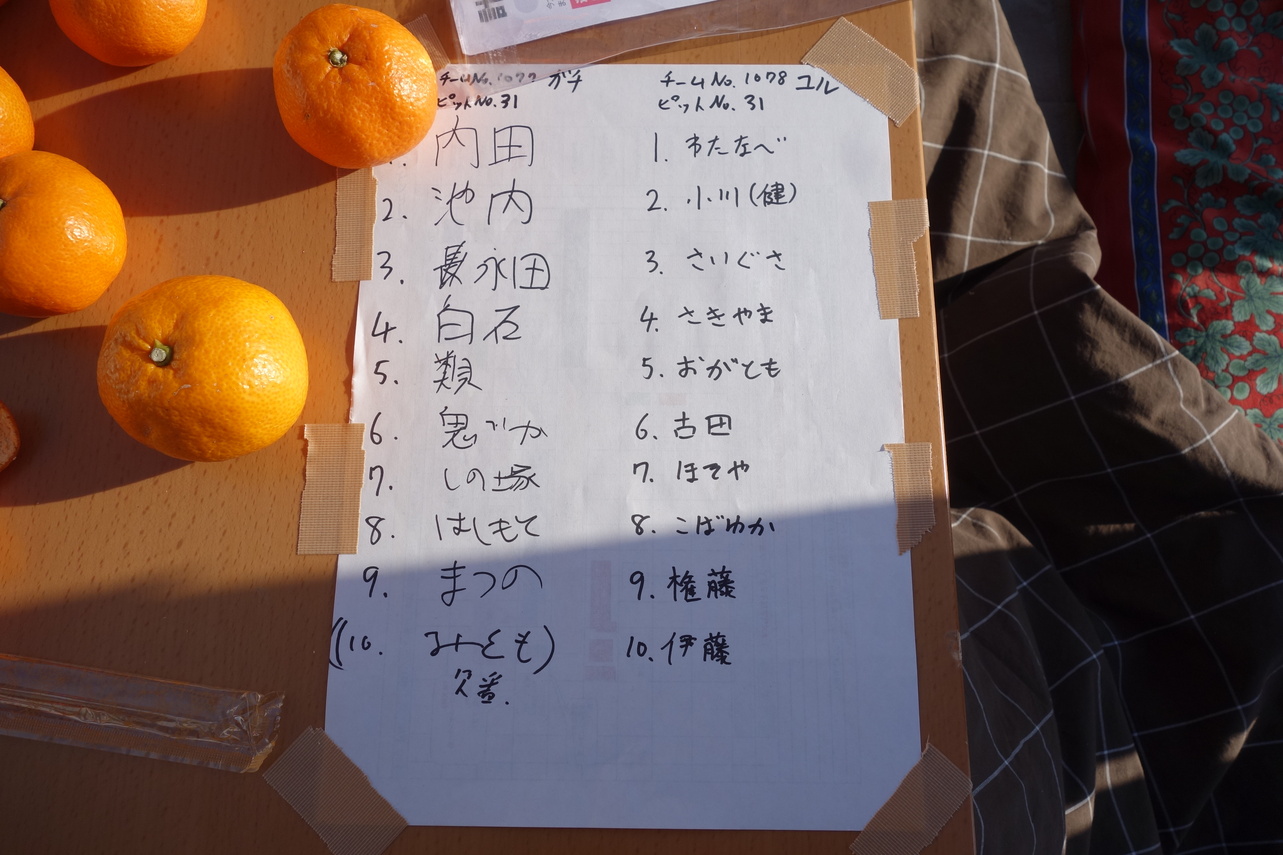 チームNo.1077 ガチ
ピットNo.31
内田
2. 池内
3. 長永田
4. 白石
5. 類
6. 鬼づか
7. しの塚
8. はしもと
9. まつの
((10. みとも)
欠番.
チームNo.1078 ユル
ピットNo.31
1. わたなべ
2. 小川(健)
3. さいぐさ
4. さきやま
5. おがとも
6. 古田
7. ほそや
8. こばゆか
9. 権藤
10. 伊藤